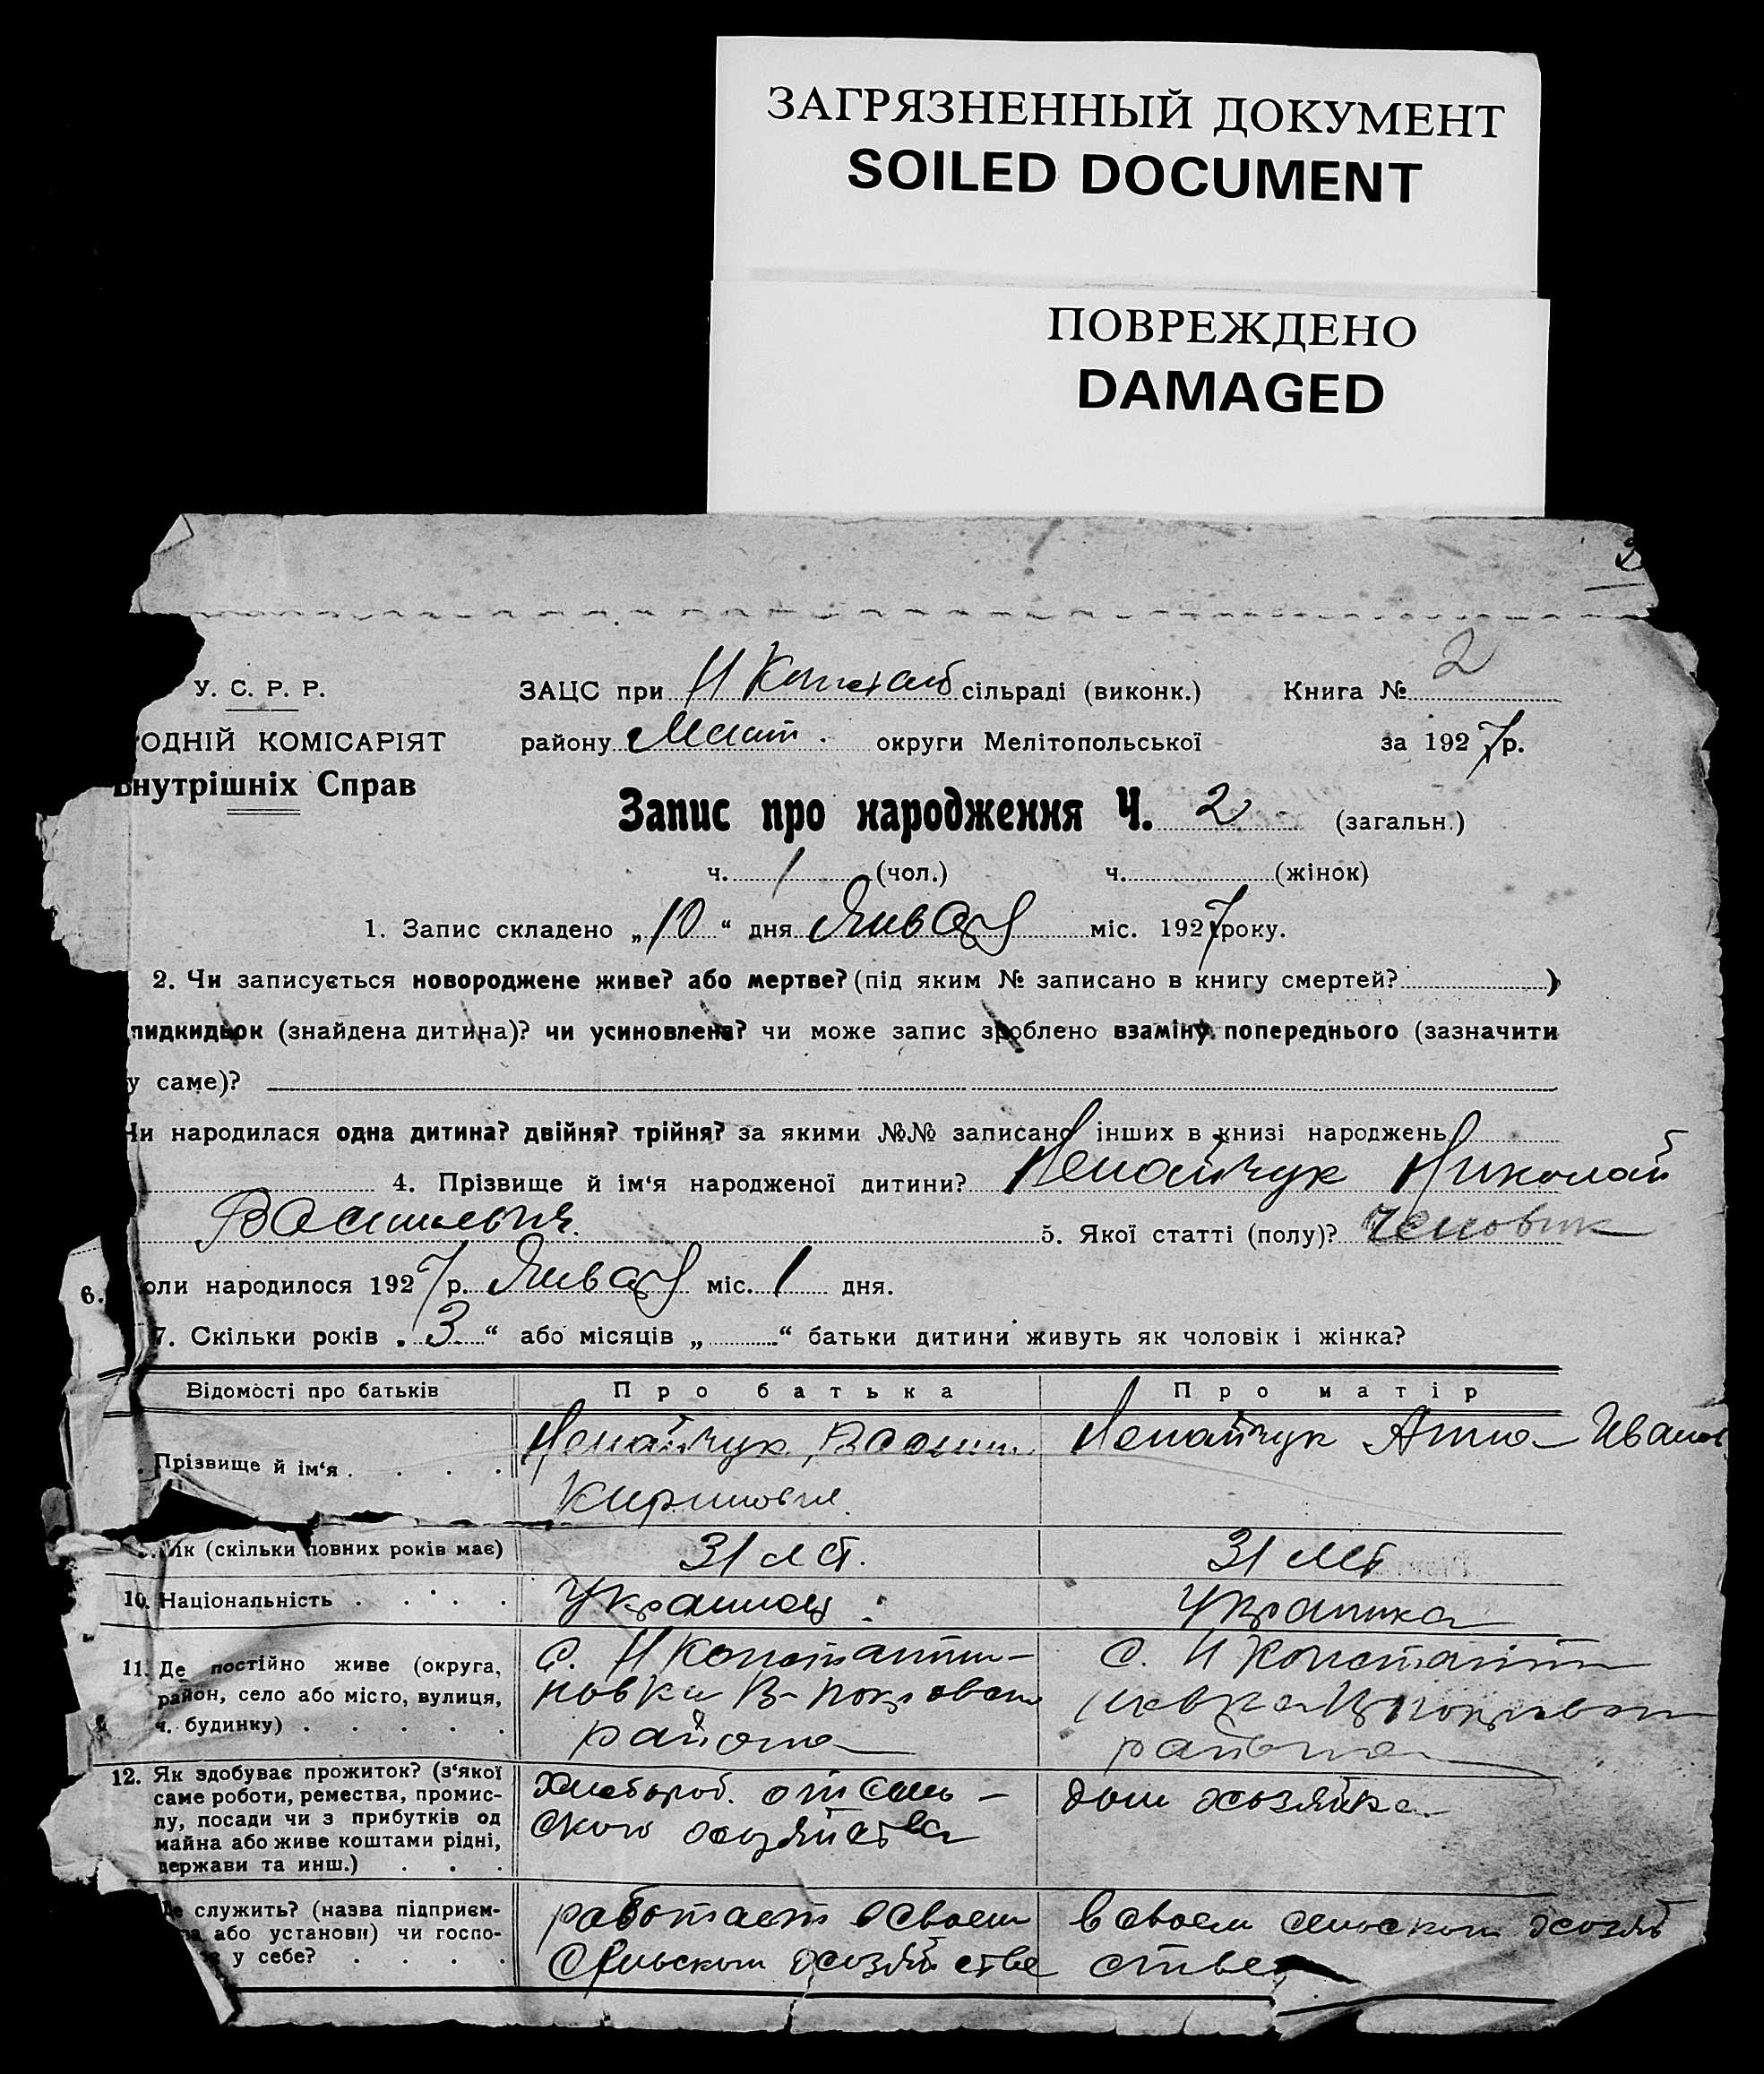 ЗАГРЯЗНЕННЫЙ ДОКУМЕНТ
SOILED DOCUMENT
ПОВРЕЖДЕНО
DAMAGED
2
У. С. Р. Р.
ЗАЦС при Н Констант сільраді (виконк.) Книга № 2
ОДНІЙ КОМІСАРІЯТ
району округи Мелітопольської за 1927 р.
Внутрішніх Справ
Запис про народження Ч. 2 (загальн.)
ч. 1 (чол.) ч. (жінок)
1. Запис складено „10“ дня Января міс. 1927 року.
2. Чи записується новороджене живе? або мертве? (під яким № записано в книгу смертей? )
пидкидьок (знайдена дитина)? чи усиновлена? чи може запис зроблено взаміну попереднього (зазначити
у саме)?
Чи народилася одна дитина? двійня? трійня? за якими №№ записано інших в книзі народжень
4. Прізвище й ім‘я народженої дитини? Николай
Васильевич 5. Якої статті (полу)? Человік
6. оли народилося 1927 р. Января міс. 1 дня.
7. Скільки років „3“ або місяців „ “ батьки дитини живуть як чоловік і жінка?
Відомості про батьків Про батька Про матір
Прізвище й ім‘я . . . . Васил. Анна Иванов
Кирилович
ік (скільки повних років має) 31 лет. 31 лет
10. Національність . . . . Украинец Украинка
11. Де постійно живе (округа, район, село або місто, вулиця, ч. будинку) . . . . .
с. Н Константи-
новка В-Покровск
района
с. Н Константи
новка В Покровск
района
12. Як здобуває прожиток? (з‘якої саме роботи, ремества, промислу, посади чи з прибутків од майна або живе коштами рідні, держави та инш.) . . .
Хлебороб. от сель-
ского хозяйства
дом хозяйка
Де служить? (назва підприєм-
ва або установи) чи госпо-
у себе? . . . .
работает в своем
сельском хозяйстве
в своем сельском хозяй
стве